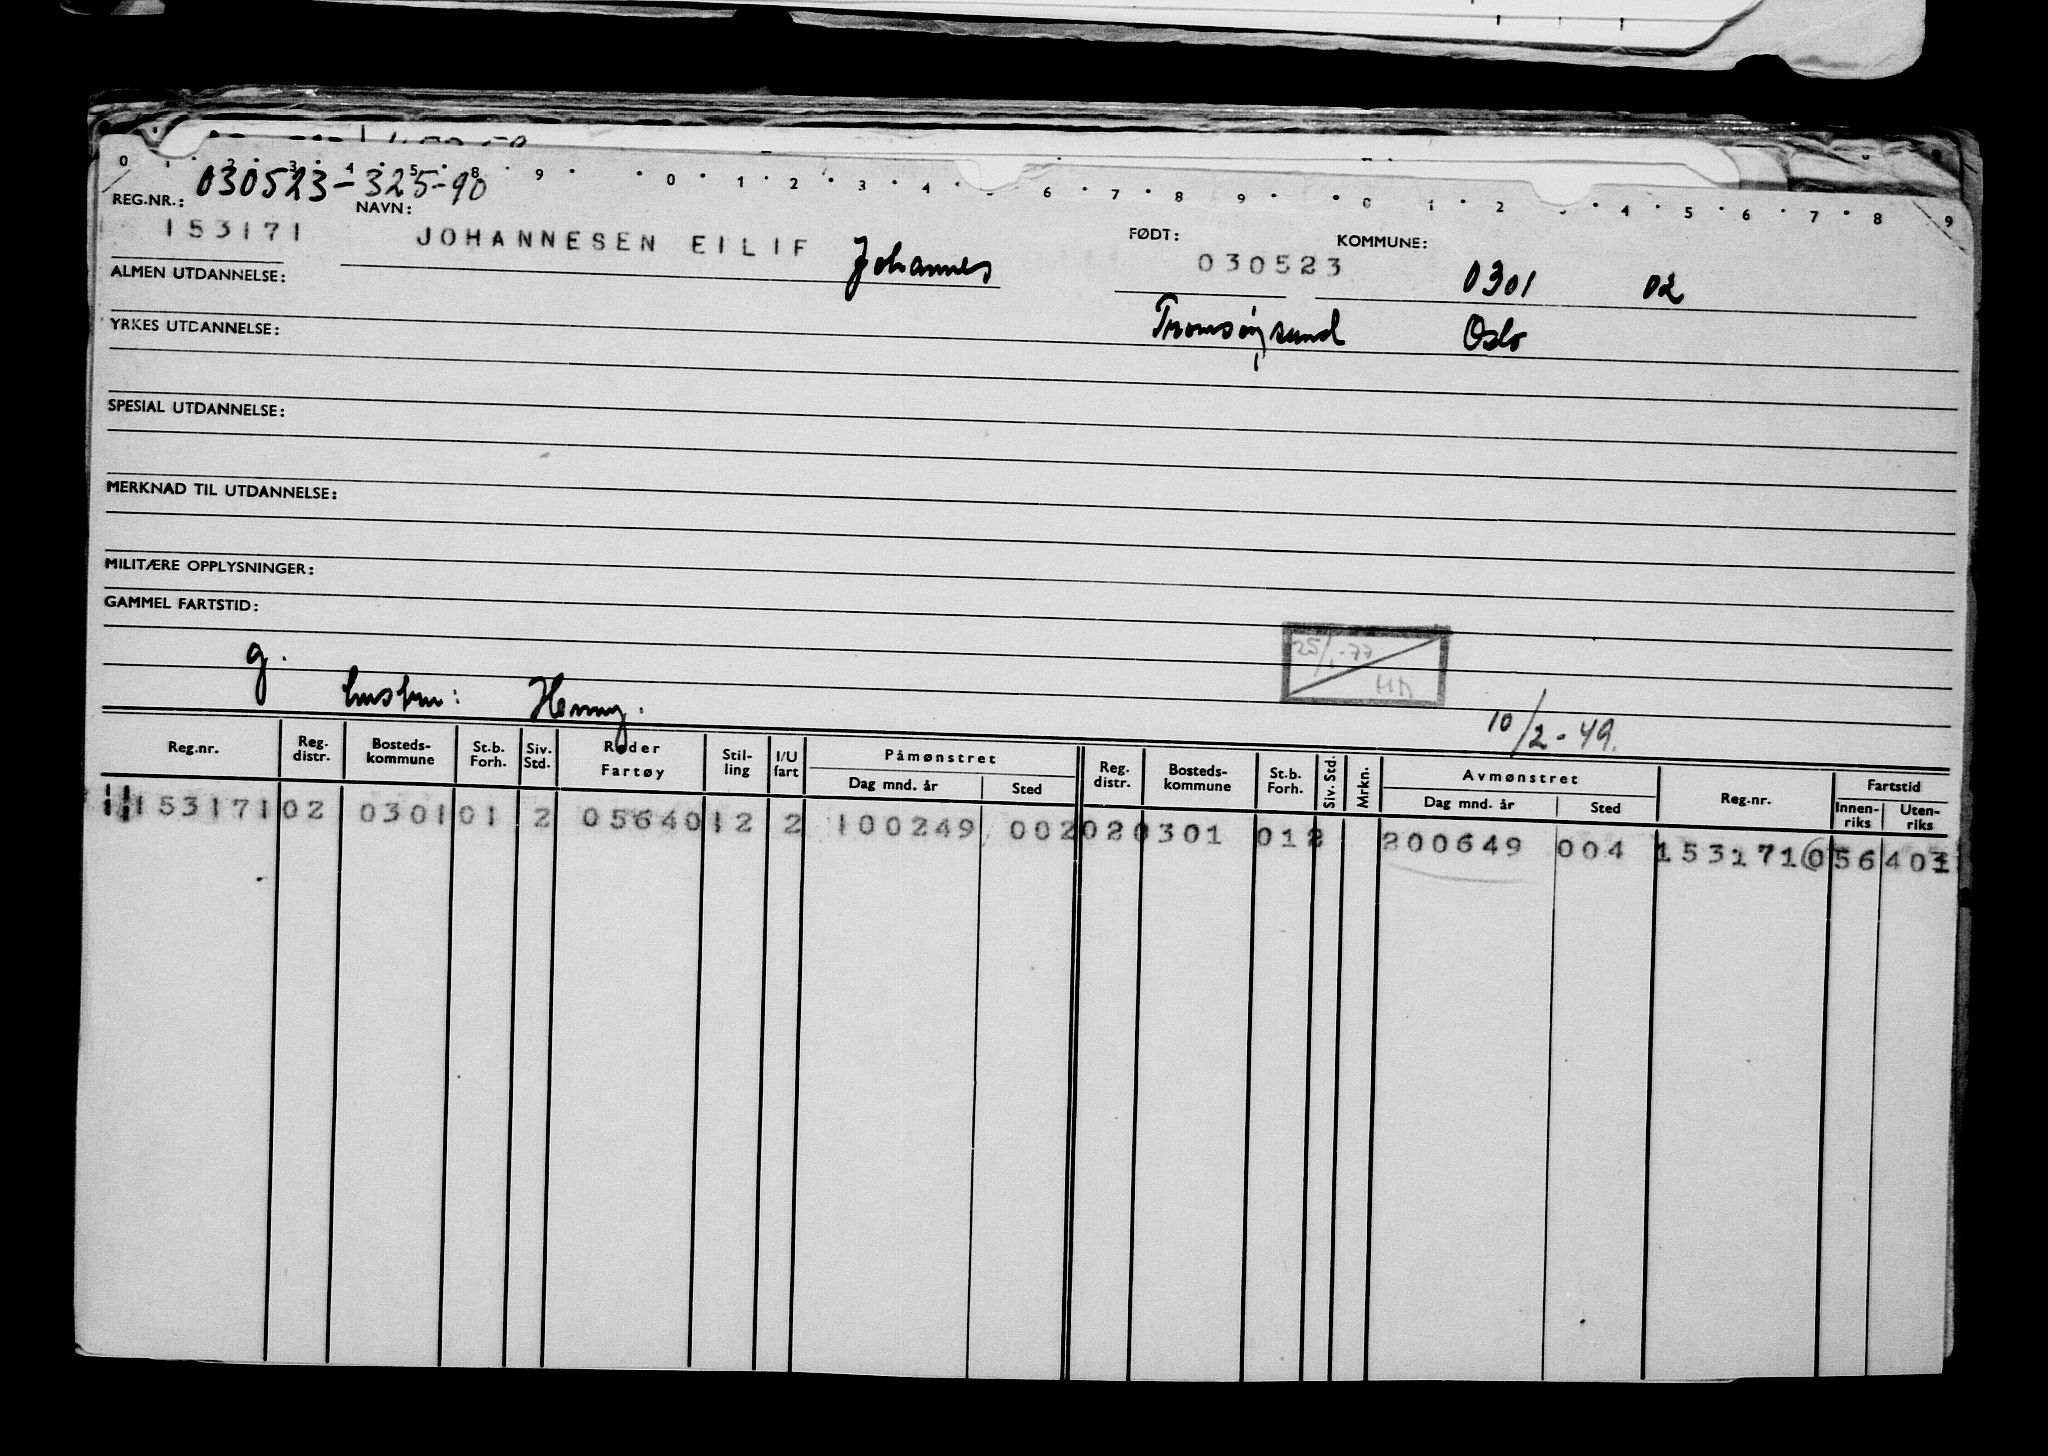 0 3 4 5 8 9 0 1 2 3 4 6 7 8 9 0 1 2 4 5 6 7 8 9
REG.NR.: 030523-325-90
NAVN:
153171 JOHANNESEN EILIF Johannes
FØDT: KOMMUNE:
030523 0301 02
ALMEN UTDANNELSE:
YRKES UTDANNELSE: Tromsøysund Oslo
SPESIAL UTDANNELSE:
MERKNAD TIL UTDANNELSE:
MILITÆRE OPPLYSNINGER:
GAMMEL FARTSTID:
25/1-77
g.
hustru: Henny.
10/2-49.
Reg.nr. Reg. distr. Bosteds-kommune St.b. Forh. Siv. Std. Reder Fartøy Stil-ling I/U fart Påmønstret Dag mnd. år Sted Reg. distr. Bosteds-kommune St.b. Forh. Siv. Std. Mrkn. Avmønstret Dag mnd. år Sted Reg.nr. Fartstid Innen-riks Uten-riks
153171 02 0301 01 2 05640 12 2 100249 002 02 0301 01 2 200649 004 153171 056 40